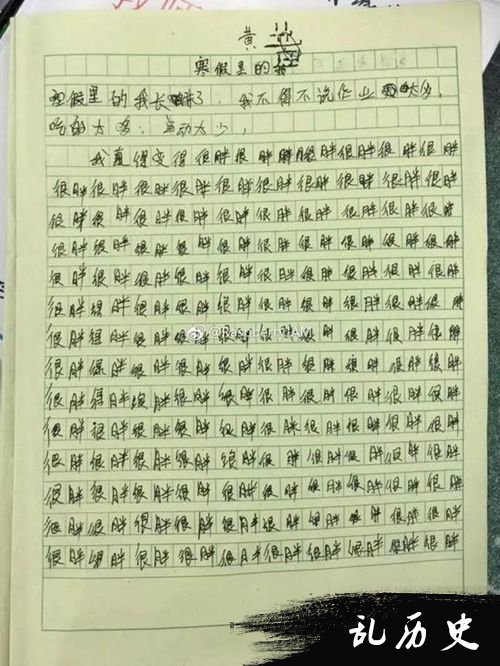 黄
寒假里的我
寒假里的我长胖了，我不得不说作业太多，
吃的太多，运动太少，
我真得变得很胖很胖胖很胖很胖很胖很胖
很胖很胖很胖很胖很胖很胖很胖很胖很胖很胖
很胖很胖很胖很胖很胖很胖很胖很胖很胖很胖
很胖很胖很胖很胖很胖很胖很胖很胖很胖很胖
很胖很胖很胖很胖很胖很胖很胖很胖很胖很胖
很胖很胖很胖很胖很胖很胖很胖很胖很胖很胖
很胖很胖很胖很胖很胖很胖很胖很胖很胖很胖
很胖很胖很胖很胖很胖很胖很胖很胖很胖很胖
很胖很胖很胖很胖很胖很胖很胖很胖很胖很胖
很胖很胖很胖很胖很胖很胖很胖很胖很胖很胖
很胖很胖很胖很胖很胖很胖很胖很胖很胖很胖
很胖很胖很胖很胖很胖很胖很胖很胖很胖很胖
很胖很胖很胖很胖很胖很胖很胖很胖很胖很胖
很胖很胖很胖很胖很胖很胖很胖很胖很胖很胖
乱历史